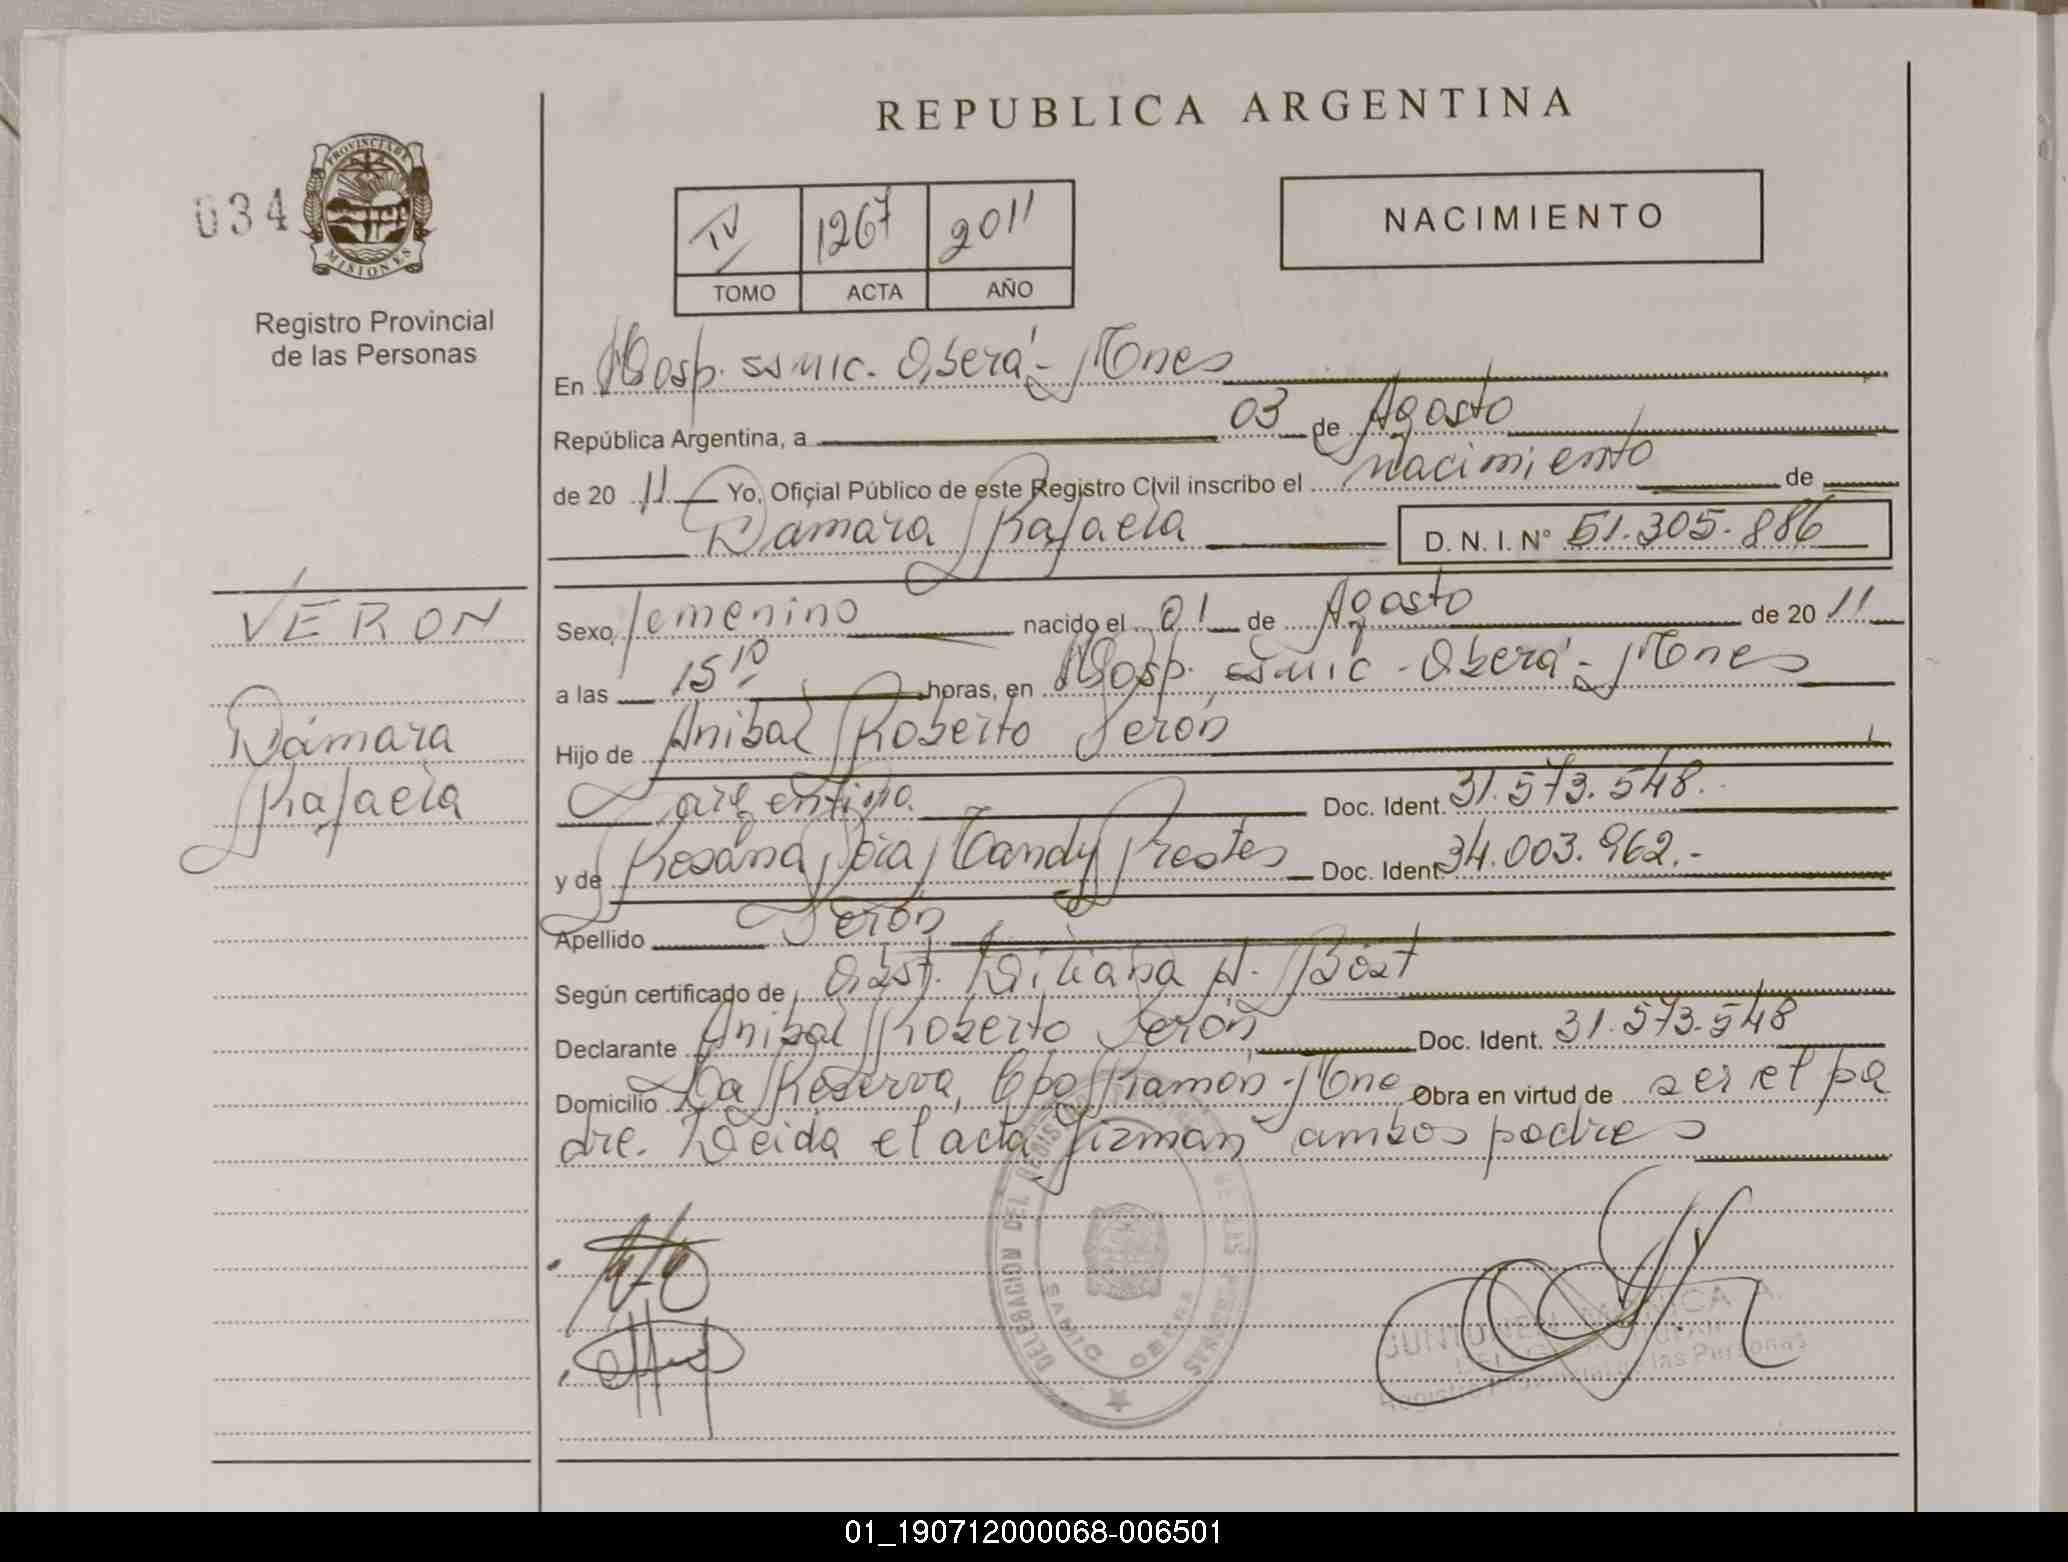 REPUBLICA ARGENTINA
034
PROVINCIA DE
MISIONES
Registro Provincial
de las Personas
IV 1267 2011
TOMO ACTA AÑO
NACIMIENTO
En Hosp. SSMIC. Oberá - Mnes
República Argentina, a 03 de Agosto
de 20 11 Yo, Oficial Público de este Registro Civil inscribo el nacimiento de
Damara Rafaela D. N. I. N° 51.305.886
VERON
Dámara
Rafaela
Sexo femenino nacido el 01 de Agosto de 20 11
a las 15 10 horas, en Hosp. SSMIC - Oberá - Mnes
Hijo de Anibal Roberto Verón
argentino Doc. Ident. 31.573.548.
y de Rosana Prestes Doc. Ident 34.003.962.-
Apellido Verón
Según certificado de Obst. Liliana A.
Declarante Anibal Roberto Verón Doc. Ident. 31.573.548
Domicilio La Reserva, Cpo Ramón - Mne Obra en virtud de ser el pa
dre. Leida el acta firman ambos padres
DELEGACION DEL REGISTRO DE LAS PERSONAS
SAMIC OBERA
JUNTUNEN MONICA A.
Registro Provincial de las Personas
01_190712000068-006501